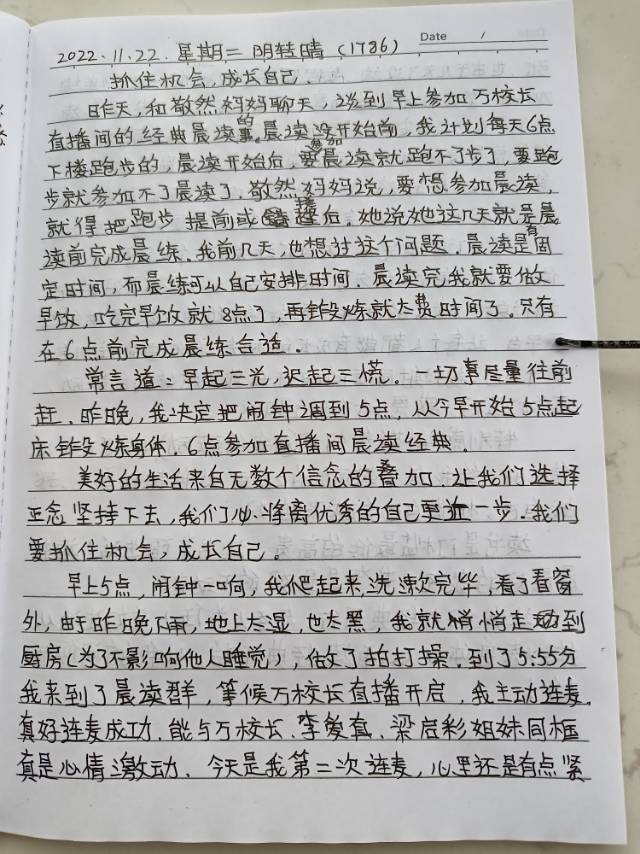 Date /
2022.11.22. 星期二 阴转晴 (1786)
抓住机会,成长自己.
昨天,和敬然妈妈聊天,谈到早上参加万校长
直播间的经典晨读的事.晨读没开始前,我计划每天6点
下楼跑步的,晨读开始后,要参加晨读就跑不了步了,要跑
步就参加不了晨读了.敬然妈妈说,要想参加晨读,
就得把跑步提前或推后.她说她这几天就是晨
读前完成晨练.我前几天,也想过这个问题.晨读是有固
定时间,而晨练可以自己安排时间.晨读完我就要做
早饭,吃完早饭就8点了,再锻炼就太费时间了.只有
在6点前完成晨练合适.
常言道:早起三光,迟起三慌.一切事尽量往前
赶.昨晚,我决定把闹钟调到5点,从今早开始5点起
床锻炼身体.6点参加直播间晨读经典.
美好的生活来自无数个信念的叠加.让我们选择
正念坚持下去,我们必将离优秀的自己更近一步.我们
要抓住机会,成长自己。
早上5点,闹钟一响,我爬起来,洗漱完毕,看了看窗
外,由于昨晚下雨,地上太湿,也太黑,我就悄悄走动到
厨房(为了不影响他人睡觉),做了拍打操.到了5:55分
我来到了晨读群,等候万校长直播开启,我主动连麦.
真好连麦成功.能与万校长、李爱真、梁启彩姐妹同框
真是心情激动.今天是我第二次连麦,心里还是有点紧